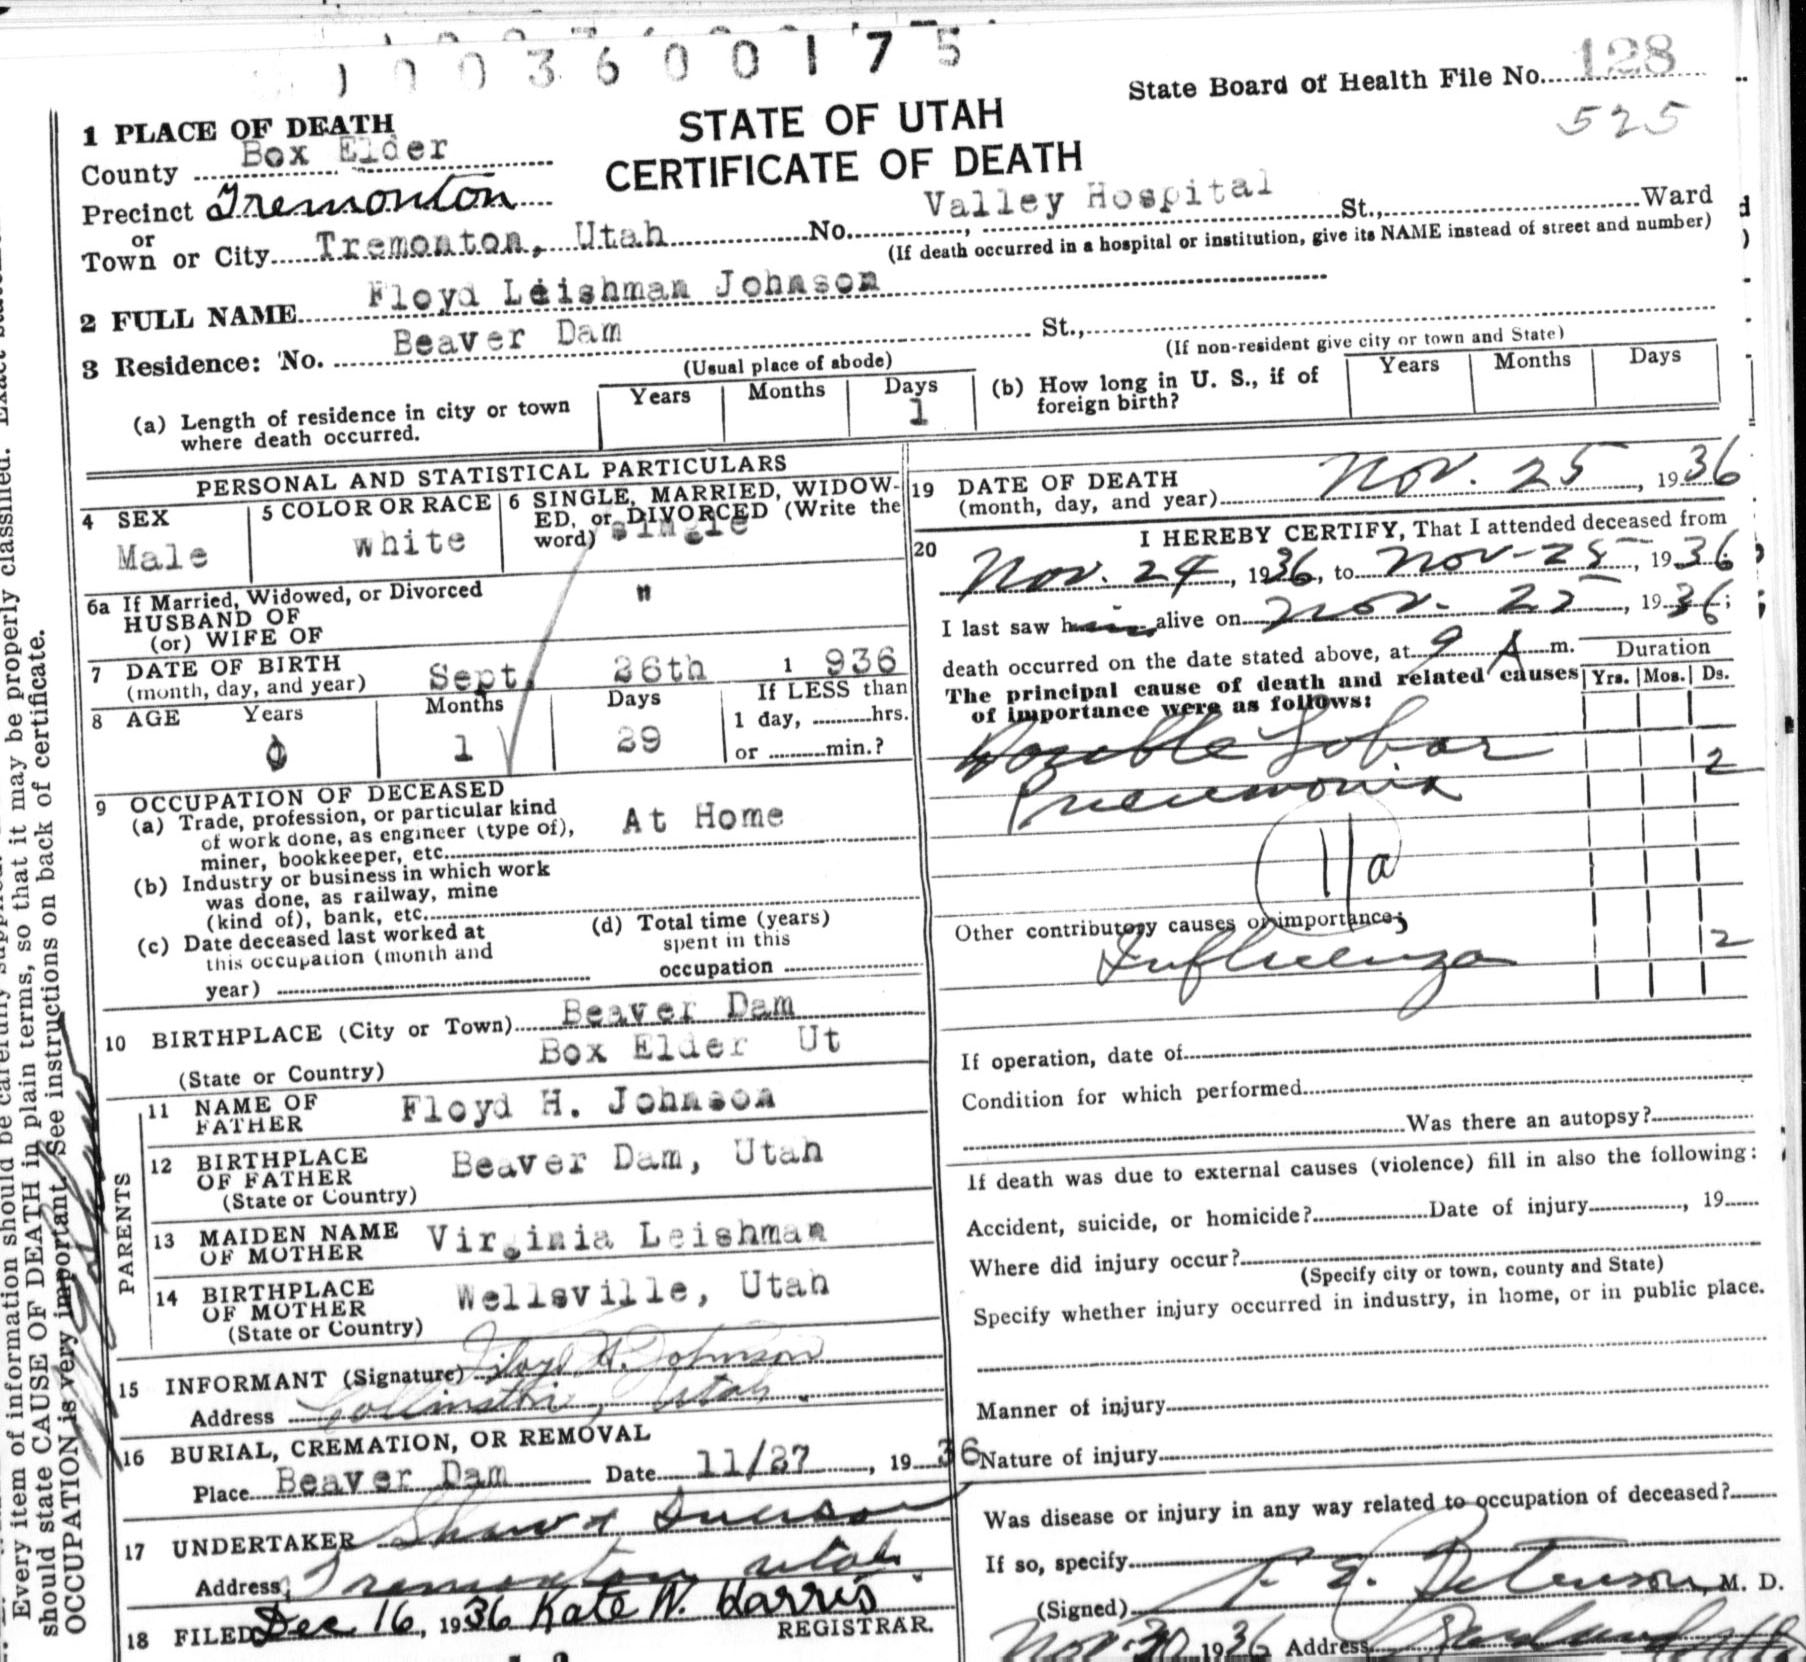 1003600175
State Board of Health File No. 128
525
STATE OF UTAH
CERTIFICATE OF DEATH
1 PLACE OF DEATH
County Box Elder
Precinct Tremonton
or
Town or City Tremonton, Utah No. Valley Hospital St., Ward
(If death occurred in a hospital or institution, give its NAME instead of street and number)
2 FULL NAME Floyd Leishman Johnson
3 Residence: No. Beaver Dam St.,
(Usual place of abode) (If non-resident give city or town and State)
(a) Length of residence in city or town where death occurred. Years Months Days 1
(b) How long in U. S., if of foreign birth? Years Months Days
PERSONAL AND STATISTICAL PARTICULARS
4 SEX Male
5 COLOR OR RACE white
6 SINGLE, MARRIED, WIDOWED, or DIVORCED (Write the word) single
6a If Married, Widowed, or Divorced
HUSBAND OF
(or) WIFE OF "
7 DATE OF BIRTH (month, day, and year) Sept. 26th 1936
8 AGE Years 0 Months 1 Days 29 If LESS than 1 day, hrs. or min.?
9 OCCUPATION OF DECEASED
(a) Trade, profession, or particular kind of work done, as engineer (type of), miner, bookkeeper, etc. At Home
(b) Industry or business in which work was done, as railway, mine (kind of), bank, etc.
(c) Date deceased last worked at this occupation (month and year)
(d) Total time (years) spent in this occupation
10 BIRTHPLACE (City or Town) Beaver Dam
(State or Country) Box Elder Ut
PARENTS
11 NAME OF FATHER Floyd H. Johnson
12 BIRTHPLACE OF FATHER (State or Country) Beaver Dam, Utah
13 MAIDEN NAME OF MOTHER Virginia Leishman
14 BIRTHPLACE OF MOTHER (State or Country) Wellsville, Utah
15 INFORMANT (Signature) Floyd H. Johnson
Address Collinston, Utah.
16 BURIAL, CREMATION, OR REMOVAL
Place Beaver Dam Date 11/27, 1936
17 UNDERTAKER Shaw &
Address Tremonton Utah.
18 FILED Dec 16, 1936 Kate W. Harris
REGISTRAR.
19 DATE OF DEATH (month, day, and year) Nov. 25, 1936
20 I HEREBY CERTIFY, That I attended deceased from
Nov. 24, 1936, to Nov-25, 1936
I last saw him alive on Nov. 25, 1936;
death occurred on the date stated above, at 9 A m.
The principal cause of death and related causes of importance were as follows:
Duration
Yrs. Mos. Ds.
Double Lobar
Pneumonia 2
11a
Other contributory causes of importance;
Influenza 2
If operation, date of
Condition for which performed
Was there an autopsy?
If death was due to external causes (violence) fill in also the following:
Accident, suicide, or homicide? Date of injury, 19
Where did injury occur?
(Specify city or town, county and State)
Specify whether injury occurred in industry, in home, or in public place.
Manner of injury
Nature of injury
Was disease or injury in any way related to occupation of deceased?
If so, specify
(Signed) Peterson, M. D.
Nov. 30, 1936 Address
Every item of information should be carefully
should state CAUSE OF DEATH in plain terms, so that it may be properly classified.
OCCUPATION is very important. See instructions on back of certificate.